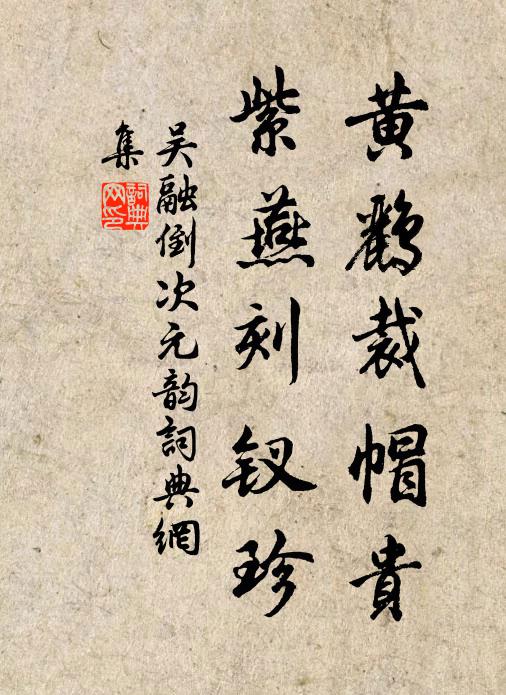 黄鸝裁帽貴
紫燕刻钗珍
吴融倒次元韵詞典網
集
詞典
网印